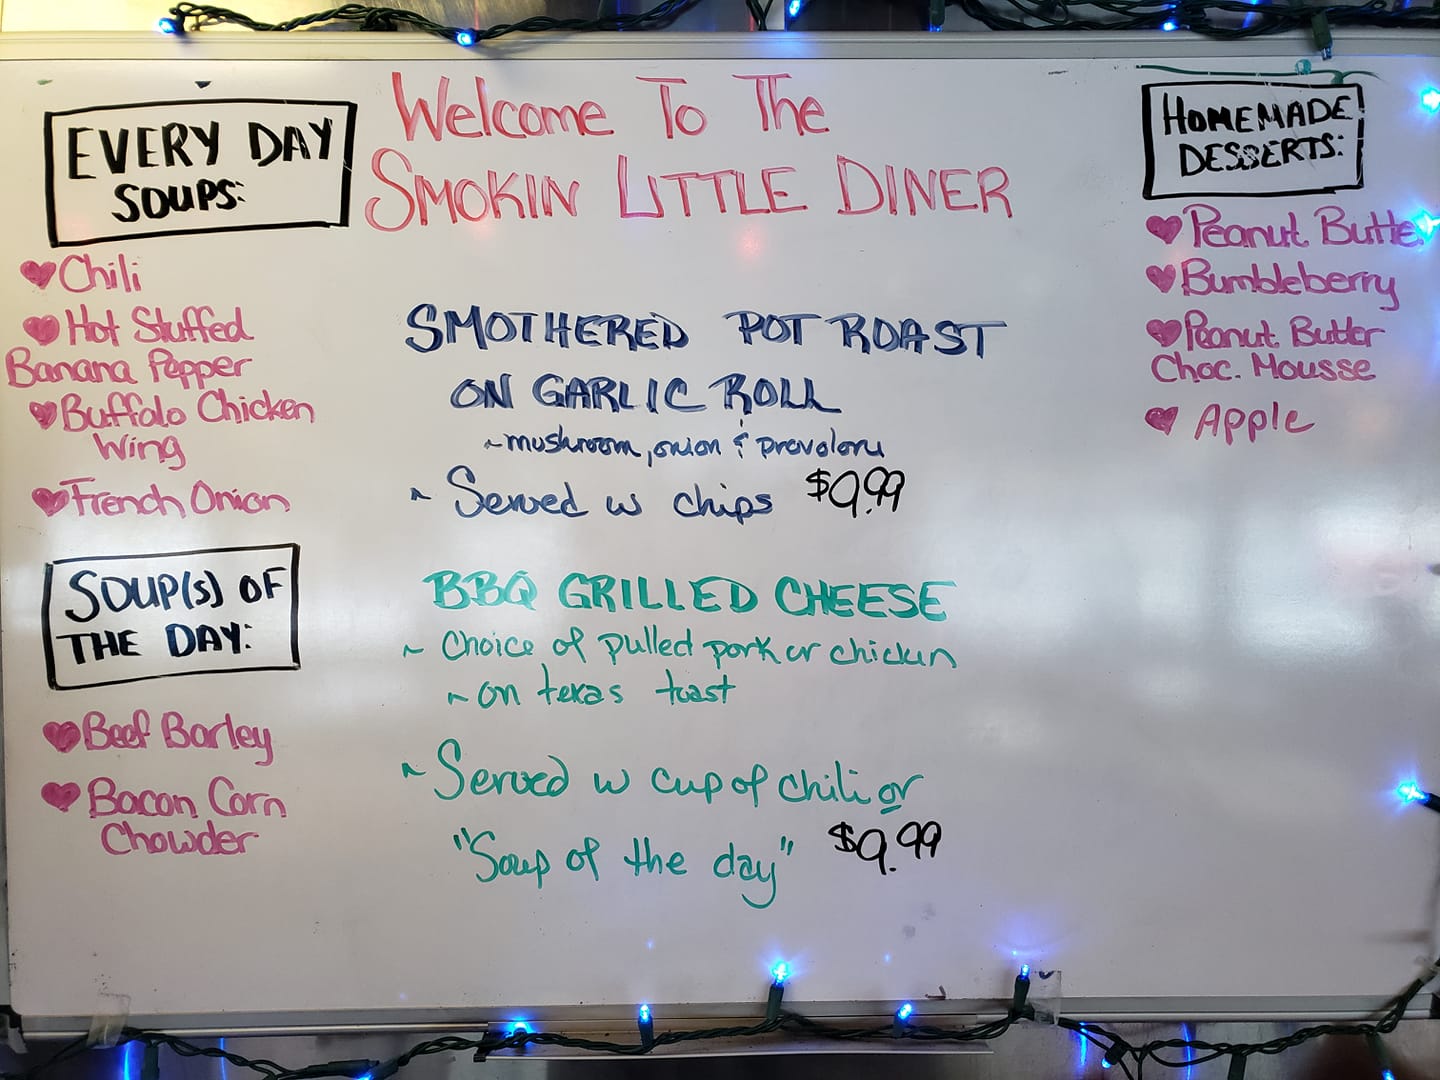 Welcome To The
SMOKIN LITTLE DINER
EVERY DAY
SOUPS:
Chili
Hot Stuffed
Banana Pepper
Buffalo Chicken
Wing
French Onion
SOUP(S) OF
THE DAY:
Beef Barley
Bacon Corn
Chowder
SMOTHERED POT ROAST
ON GARLIC ROLL
~ mushroom, onion & provolone
~ Served w chips $9.99
BBQ GRILLED CHEESE
~ Choice of pulled pork or chicken
~ on texas toast
~ Served w cup of chili or
"Soup of the day" $9.99
HOMEMADE
DESSERTS:
Peanut Butte
Bumbleberry
Peanut Butter
Choc. Mousse
Apple